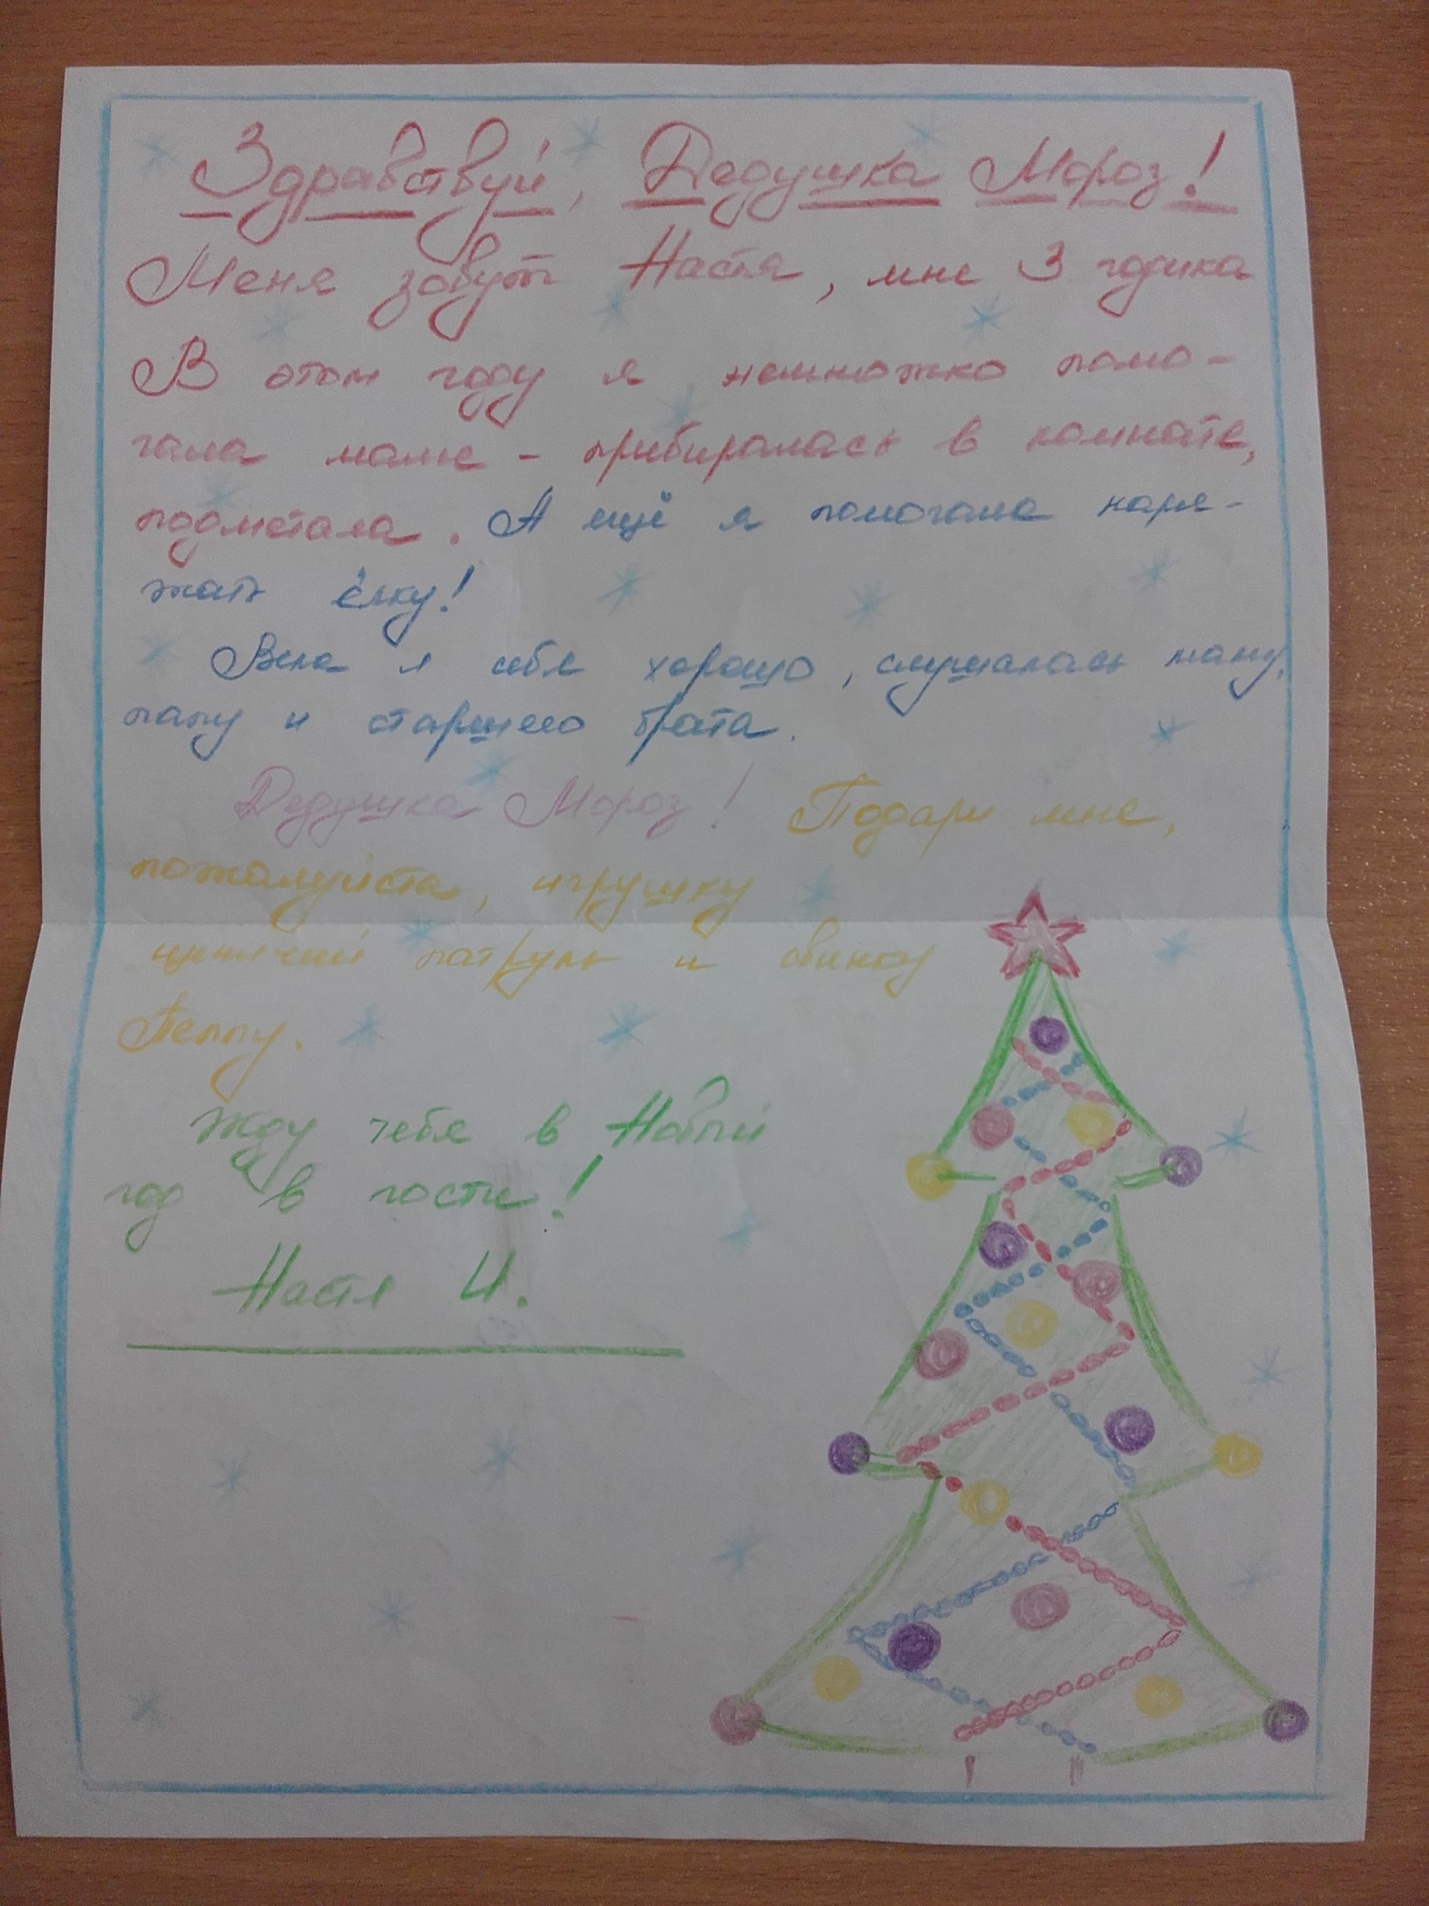 Здравствуй, Дедушка Мороз!
Меня зовут Настя, мне 3 годика
В этом году я немножко помо-
гала маме - прибиралась в комнате,
подметала. А ещё я помогала наря-
жать ёлку!
Вела я себя хорошо, слушалась маму,
папу и старшего брата.
Дедушка Мороз! Подари мне,
пожалуйста, игрушку
щенячий патруль и свинку
Пеппу.
Жду тебя в Новый
год в гости!
Настя И.